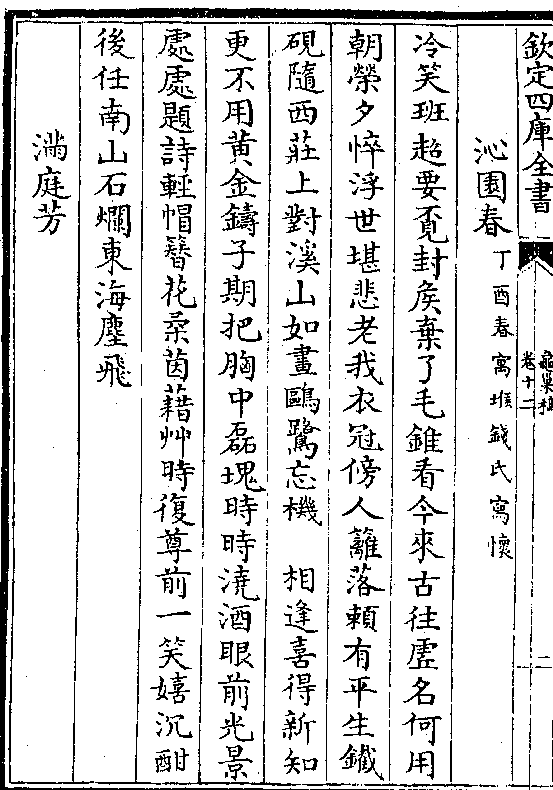 欽定四庫全書
龜巢稿
卷十二
二
沁園春 丁酉春寓堠錢氏寓懷
冷笑班超要覓封侯棄了毛錐看今來古往虛名何用
朝榮夕悴浮世堪悲老我衣冠傍人籬落賴有平生鐵
硯隨西莊上對溪山如畫鷗鷺忘機 相逢喜得新知
更不用黃金鑄子期把胸中磊塊時時澆酒眼前光景
處處題詩輕帽簪花柔茵藉艸時復尊前一笑嬉沉酣
後任南山石爛東海塵飛
滿庭芳